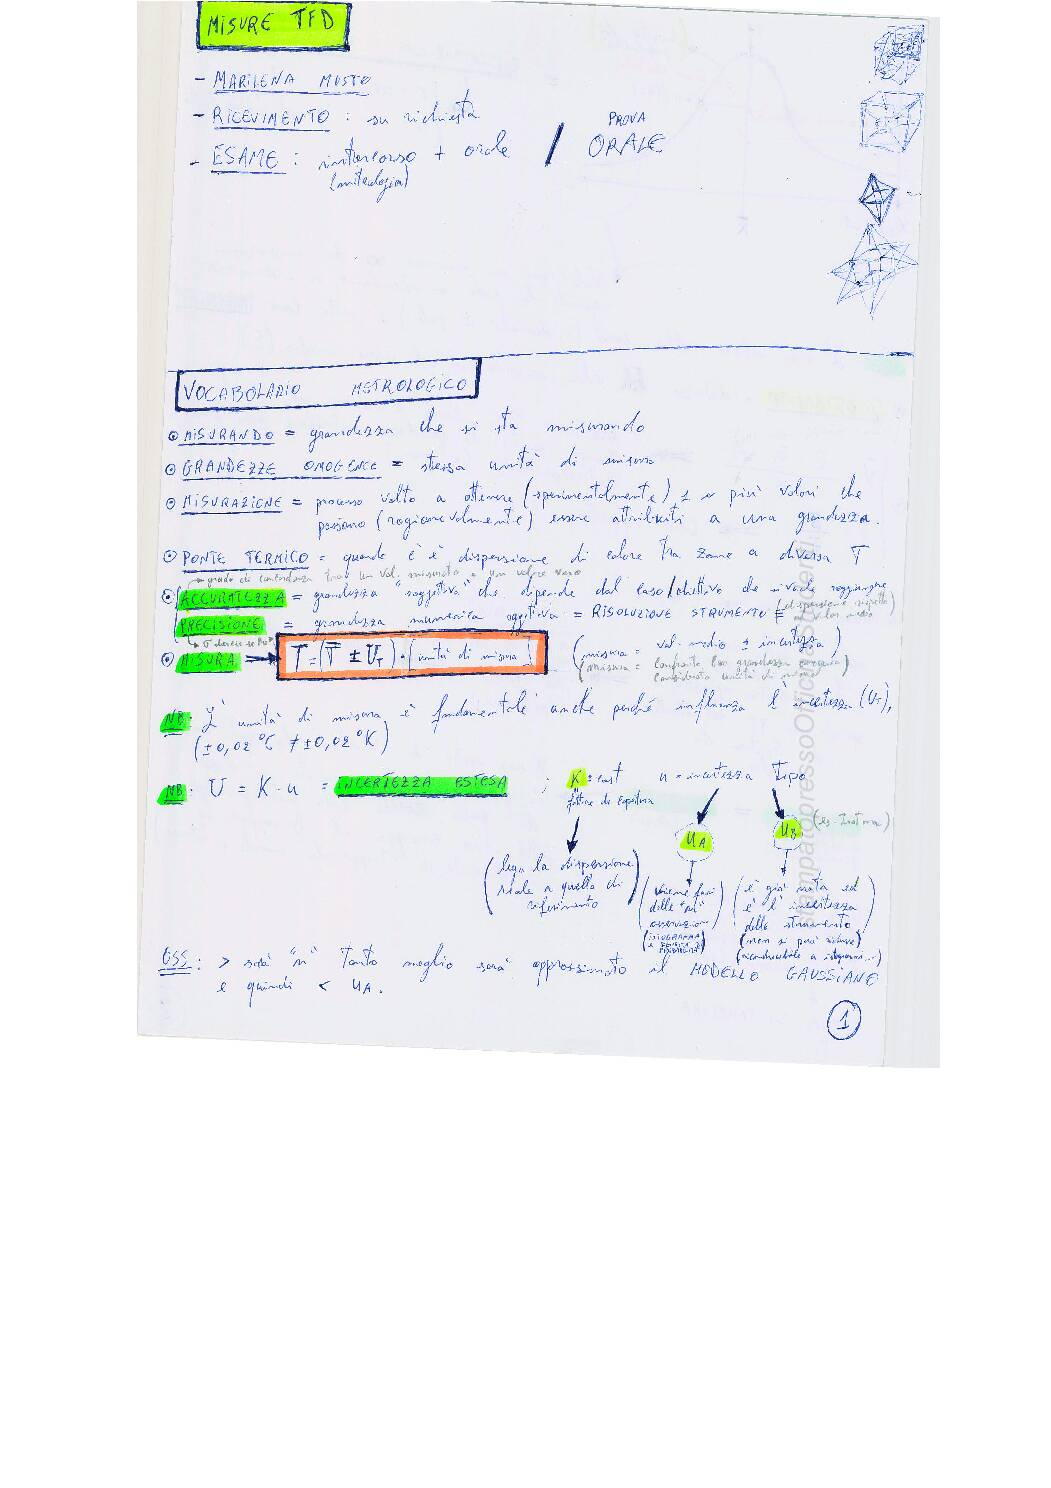 MISURE TFD
- MARILENA MUSTO
- RICEVIMENTO : su richiesta
- ESAME : intercorso + orale / PROVA ORALE
(metrologia)
VOCABOLARIO METROLOGICO
MISURANDO = grandezza che si sta misurando
GRANDEZZE OMOGENEE = stessa unità di misura
MISURAZIONE = processo volto a ottenere (sperimentalmente) 1 o più valori che
possono (ragionevolmente) essere attribuiti a una grandezza.
PONTE TERMICO = quando c'è dispersione di calore tra zone a diversa T
grado di concordanza tra un val. misurato e un valore vero
ACCURATEZZA = grandezza "soggettiva" che dipende dal caso/obiettivo che si vuole raggiungere
PRECISIONE = grandezza numerica oggettiva = RISOLUZIONE STRUMENTO (dispersione rispetto valor medio)
MISURA → T = (T̅ ± U_T) · [unità di misura] (misura = val. medio ± incertezza)
(misura = confronto tra grandezza
considerata unità di misura)
NB: L'unità di misura è fondamentale anche perché influenza l'incertezza (U_T),
(±0,02 °C ≠ ±0,02 °K)
NB: U = K · u = INCERTEZZA ESTESA ; K = cost u = incertezza tipo
fattore di copertura
u_A u_B (es. )
(lega la dispersione
reale a quella di
riferimento)
(viene fuori
delle "n"
osservazioni
(ISTOGRAMMA
(è già nota ed
è l'incertezza
dello strumento
(non si può ridurre)
OSS: > sarà "n" tanto meglio sarà approssimato il MODELLO GAUSSIANO
e quindi < u_A.
1
stampatopressoOfficinaStudenti